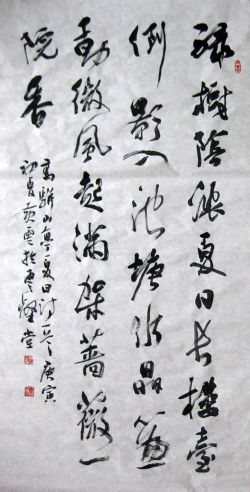 緑樹陰濃夏日長樓臺
倒影入池塘水晶簾
動微風起滿架薔薇一
院香
高駢山亭夏日詩一首庚寅
初夏於堂